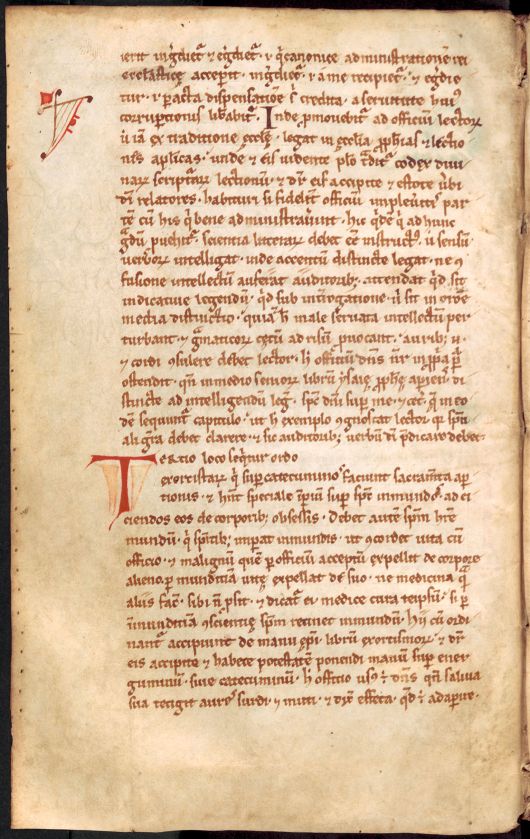 ierit ingdiet᷒ & egdiet᷒. & q̇ canonice administratione rei
ecclastice acceperit. ingdiet᷒. & a me recipiet᷒. & egdie
tur. & pacta dispensatiōe s̄ credita. a seruitute hui᷒
corruptionis libabit᷒. Inde pmouebit᷒ ad officiū lectoꝝ
ū iā ex traditione eccłe. legat in ecclia pphias. & lectio
nes aplicas. unde & eis uidente plo t̄dit᷒ codex diui
naꝝ scripturaꝝ lectionū. & dr̄ eis accipite & estote ūbi
dī relatores. habituri si fidelit᷒ officiū impleueritis par
tē cū his q̇ bene administrauerint. hic q̇dē q̇ ad hunc
gdū puehit᷒. scientia litteraꝝ debet eē instruct᷒. ū sensū
uerboꝝ intelligat. uim accentuū distincte legat. ne ꝯ
fusione intellectū auferat auditorib;. attendat qd̄ sit
indicatiue legendū. qd̄ sub int̄rogatione. ū sit in orōne
media distinctio. quia h̄ male seruata intellectū per
turbant. & gmaticoꝝ cetū ad risū puocant. aurib; ū.
& cordi ꝯsulere debet lector. h̄ officiū dn̄s nr̄ in ppa p̄
ostendit. qn̄ in medio senioꝝ librū ysaie pphe apiens᷒ di
stincte ad intelligendū leḡ. spc̄ dn̄i sup me. & cet᷒. q̄ in eo
dē sequunt᷒ capitulo. ut h̄ exemplo ꝯgnoscat lector qr spit̄
ali gr̄a debet clarere. & sic auditorib; uerbū dī pdicare debet.
Tertio loco seqitur ordo
exorcistaꝝ q̇ sup catecuminos faciunt sacram̄ta ap
tionis. & hn̄t speciale īpiū sup spc̄ inmundos. ad ei
ciendos eos de corporib; obsessis. Debet autē spm̄ hr̄e
mundū. q̇ spitib; imperat inmundis. ut ꝯcordet uita cū
officio. & malignū quē p officiū acceptū expellit de corpore
alieno. p mundiciā uite expellat de suo. ne medicina q̄
aliis fac̄. sibi n̄ psit. & dicat᷒ ei. medice cura teipsū. si p
īmunditiā ꝯscientie spm̄ retinet inmundū. Hij cū ordi
nant᷒ accipiunt de manu epi librū exorcismoꝝ & dr̄
eis accipite & habete potestatē ponendi manū sup ener
guminū. siue catecuminū. h̄ officio us᷒ ē dn̄s qn̄ saliua
sua tetigit aures surdi. & muti. & dix̄ effeta. qd̄ ē adaperire.